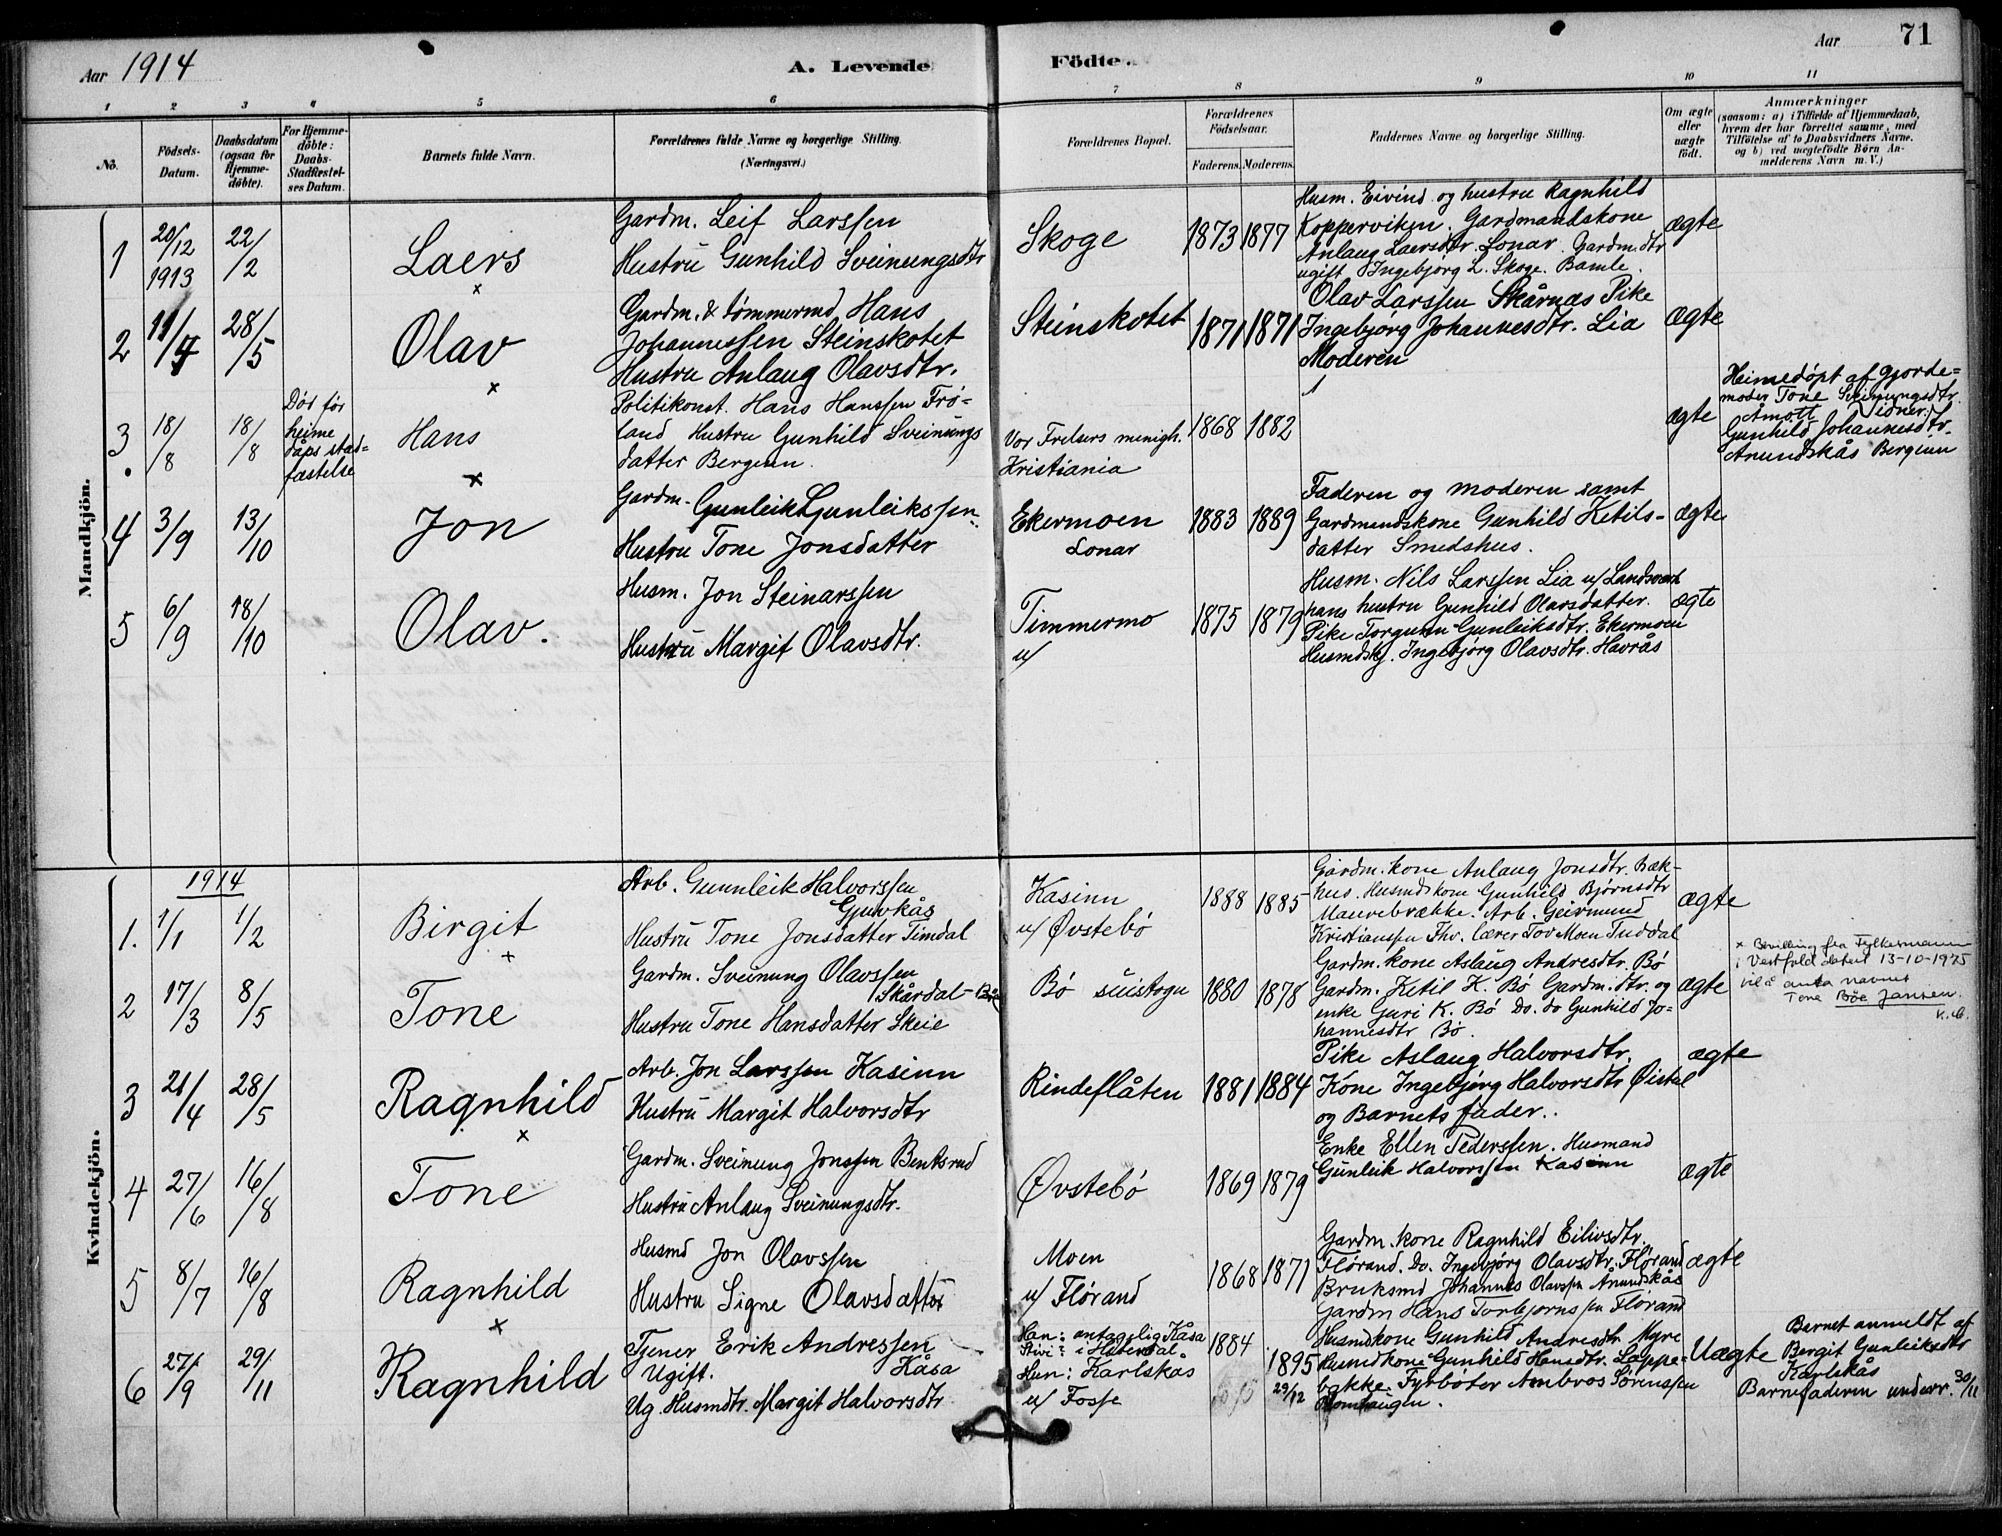 Aar 1914
A. Levende
Födte.
Aar
71
1 2 3 4 5 6 7 8 9 10 11
No.
Födsels-
Datum.
Daabsdatum
(ogsaa for
Hjemme-
döbte).
For Hjemme-
döbte:
Daabs-
Stadfæstel-
ses Datum.
Barnets fulde Navn.
Forældrenes fulde Navne og borgerlige Stilling.
(Næringsvei.)
Forældrenes Bopæl.
Forældrenes
Födselsaar.
Faderens. Moderens.
Faddernes Navne og borgerlige Stilling.
Om ægte
eller
uægte
födt.
Anmærkninger
(saasom: a) i Tilfælde af Hjemmedaab,
hvem der har forrettet samme, med
Tilföielse af to Daabsvidners Navne.
og b) ved uægtefödte Börn An-
melderens Navn m. V.)
Mandkjön.
1
20/12
1913
22/2
Laers
x
Gardm. Leif Larssen
Hustru Gunhild Sveinungsdtr
Skoge
1873 1877
Husm. Eivind og hustru Ragnhild
Kopperviken. Gardmandskone
Anlaug Laersdtr. Lonar. Gardm.dtr
ugift Ingebjørg L. Skoge. Bamle.
ægte
2
28/5
Olav
x
Gardm. & tømmermd. Hans
Johannessen Steinskotet
Hustru Anlaug Olavsdtr.
Steinskotet
1871 1871
Olav Larssen Skårnes Pike
Ingebjørg Johannesdtr. Lia
Moderen
ægte
3
18/8
18/8
Død før
heime
dåps stad-
fæstelse
Hans
x
Politikonst. Hans Hanssen Frø-
land Hustru Gunhild Sveinungs
datter Bergenn.
Vor Frelsers menigh.
Kristiania
1868 1882
ægte
Heimedøpt af gjorde-
moder Tone Sveinungsdtr.
Åmott Vidner:
Gunhild Johannesdtr.
Anundskås Bergenn
4
3/9
13/10
Jon
Gardm. Gunleik Gunleikssen
Hustru Tone Jonsdatter
Ekermoen
Lonar
1883 1889
Faderen og moderen samt
Gardmandskone Gunhild Ketils-
datter Smedshus.
ægte
5
6/9
18/10
Olav.
Husm. Jon Steinarssen
Hustru Margit Olavsdtr.
Timmermo
u/
1875 1879
Husm. Nils Larssen Lia u/ Landsverk
hans hustru Gunhild Olavsdatter.
Pike Torgunn Gunleiksdtr. Ekermoen
Husmdsk. Ingebjørg Olavsdtr. Havrås
ægte
Kvindekjön.
1914
1.
1/1
1/2
Birgit
x
Arb. Gunnleik Halvorssen
Gjuvkås
Hustru Tone Jonsdatter Timdal
Kasinn
u/ Øvstebø
1888 1885
Gardm. kone Anlaug Jonsdtr. Bæk-
hus. Husmdskone Gunhild Bjørnsdtr
Maurebrække. Arb. Geirmund
Kristianssen Thv. lærer Tov Moen Tuddal
ægte
2
17/3
8/5
Tone
Gardm. Sveinung Olavssen
Skårdal - Bø
Hustru Tone Hansdatter Skeie
Bø suistogu
1880 1878
Gardm. kone Aslaug Andresdtr. Bø
Gardm. Ketil K. Bø Gardm. dtr. og
enke Guri K. Bø Do. do Gunhild Jo-
hannesdtr Bø.
ægte
x Bevilling fra Fylkesmann
i Vestfold datert 13-10-1975
til å anta navnet
Tone Bøe Jansen.
3
21/4
28/5
Ragnhild
x
Arb. Jon Larssen Kasinn
Hustru Margit Halvorsdtr
Rindeflåten
1881 1884
Pike Aslaug Halvorsdtr.
Kone Ingebjørg Halvorsdtr Øistul
og Barnets fader.
ægte
4
27/6
16/8
Tone
Gardm. Sveinung Jonssen Benksrud
Hustru Anlaug Sveinungsdtr.
Øvstebø
1869 1879
Enke Ellen Pederssen. Husmand
Gunleik Halvorssen Kasinn
ægte
5
8/7
16/8
Ragnhild
x
Husmd Jon Olavssen
Hustru Signe Olavsdatter
Moen
u/ Flørand
1868 1871
Gardm. kone Ragnhild Eilivsdtr.
Flørand. Do. Ingebjørg Olavsdtr. Flørand
Bruksmd Johannes Olavssen Anundskås
Gardm Hans Torbjørnssen Flørand
ægte
6
27/9
29/11
Ragnhild
Tjener Erik Andressen
Ugift. Kåsa
Ug. Husmdtr. Margit Halvorsdtr
Han: antagelig Kåsa
i Hiterdal
Hun: Karlskås
u/ Fosse
1884
1895
29/12
Husmdkone Gunhild Andresdtr Myre
Husmdkone Gunhild Hansdtr. Loppe-
bakke. Fyrbøter Ambros Sørenssen
Uægte
Barnet anmeldt af
Bergit Gunleiksdtr
Karlskås
Barnefaderen underr. 30/11